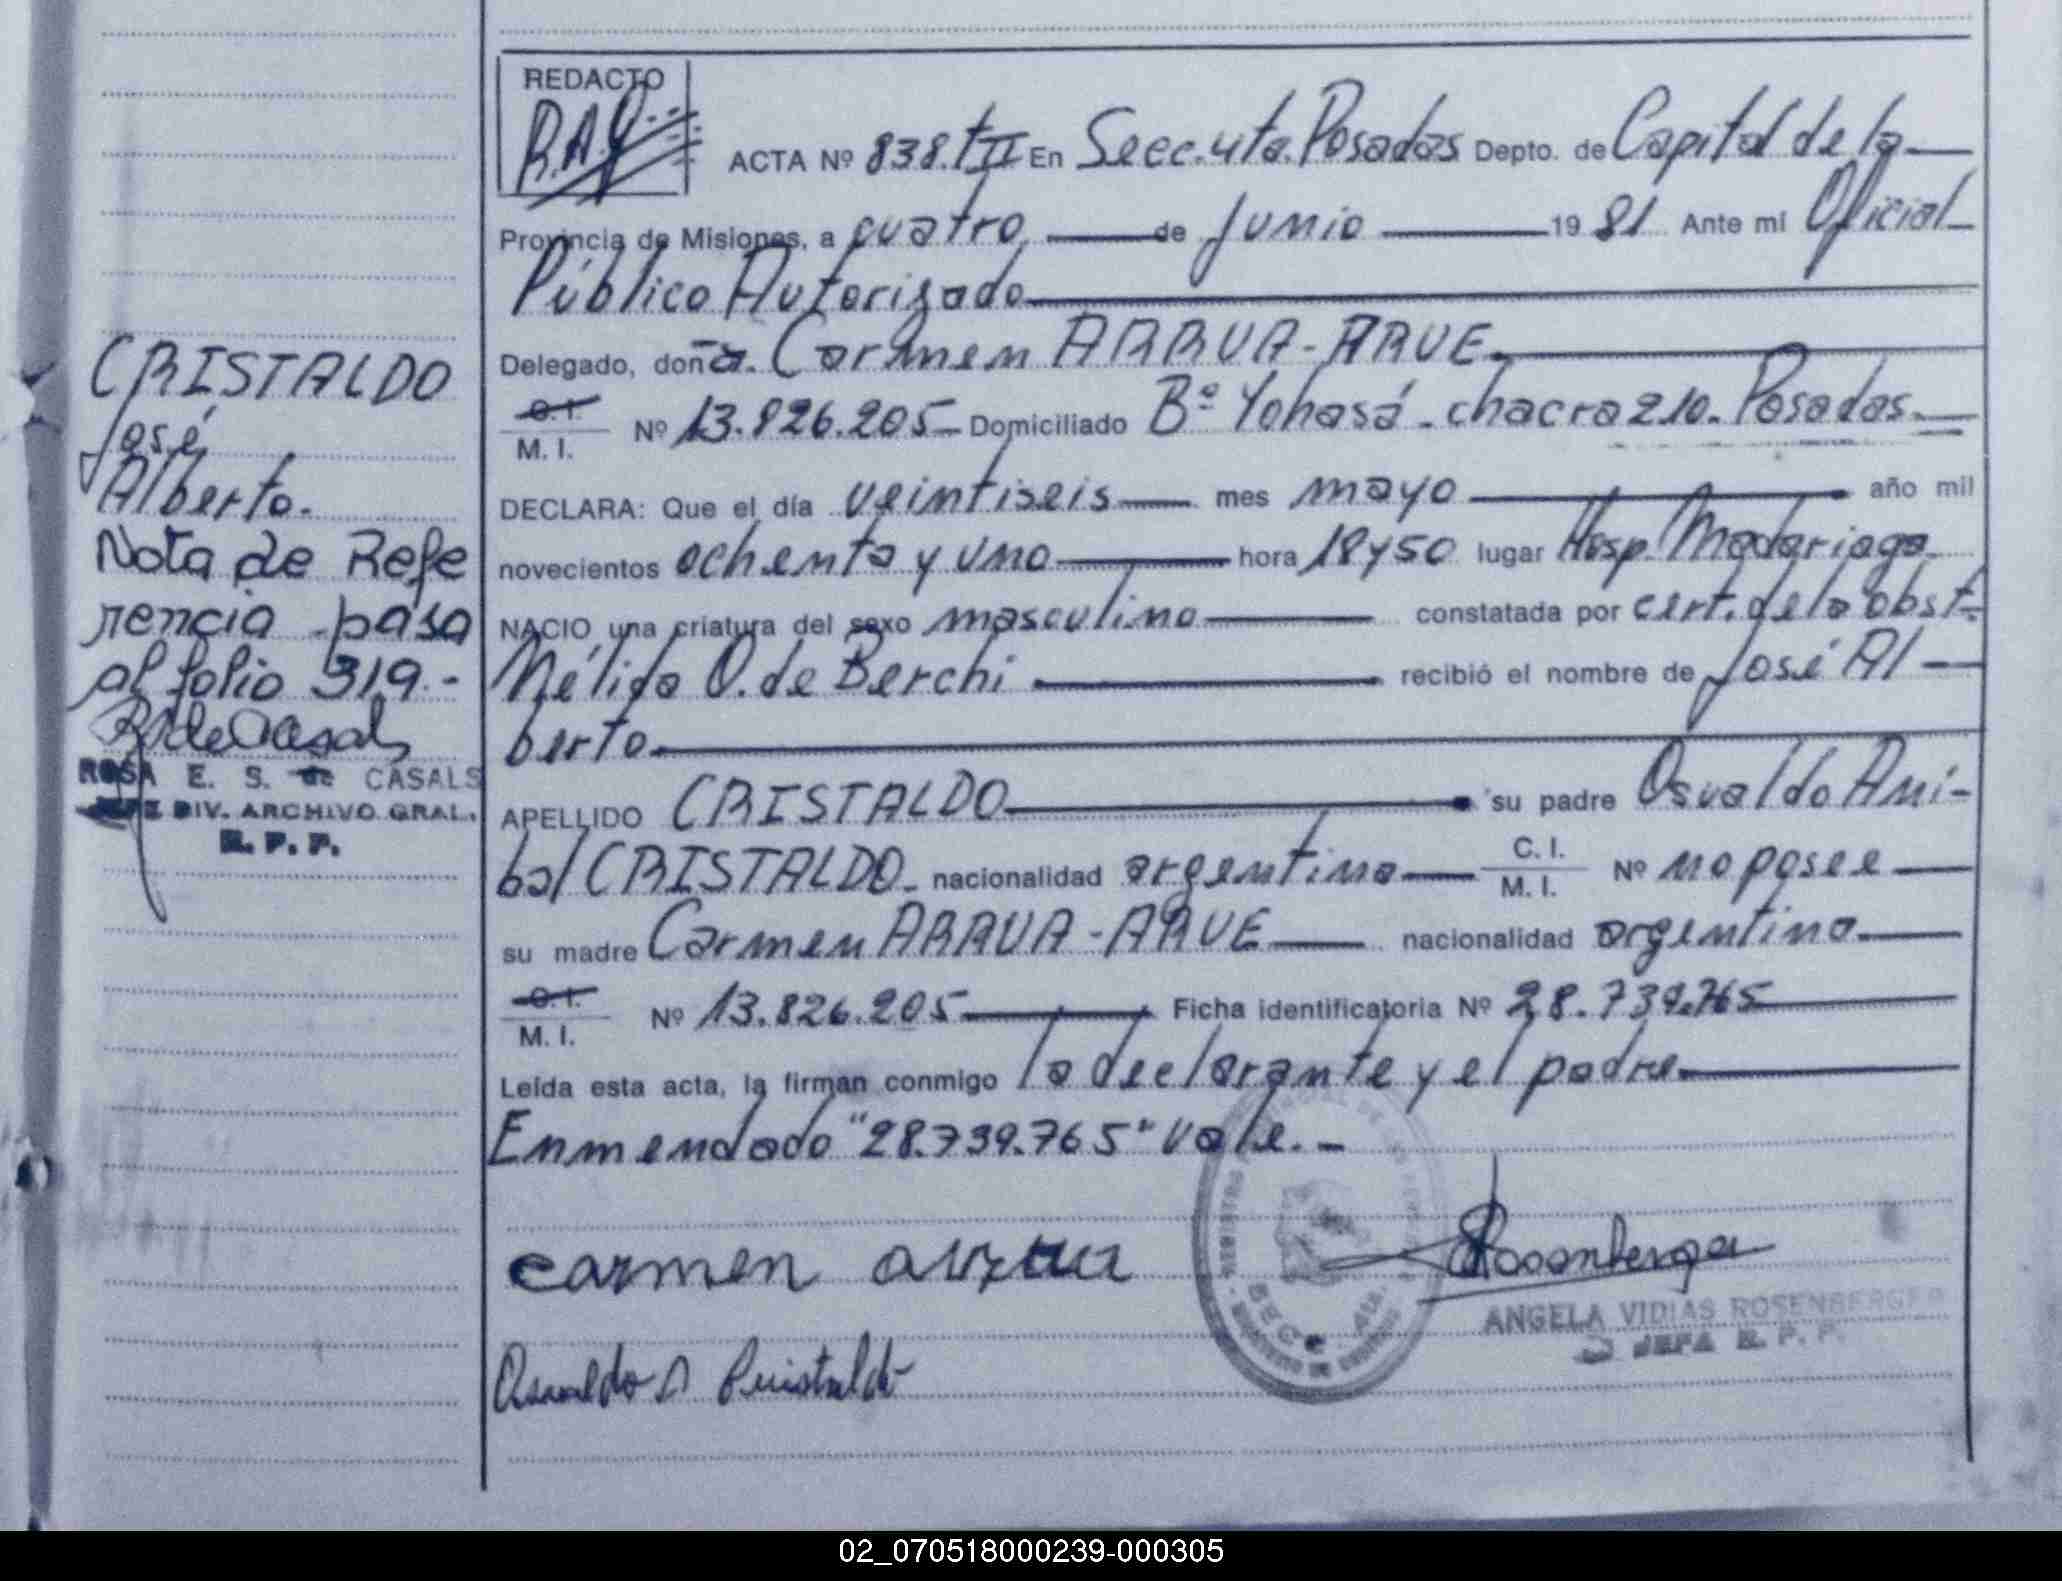 REDACTO
R.A.G.
ACTA Nº 838.tII En Secc.4ta.Posadas Depto. de Capital de la
Provincia de Misiones, a cuatro de Junio 1981 Ante mi Oficial
Público Autorizado
Delegado, doña. Carmen ARRUA-ARUE.
C. I.
M. I.
Nº 13.826.205 Domiciliado Bº Yohasá. chacra 210. Posadas.
DECLARA: Que el día veintiseis mes mayo año mil
novecientos ochenta y uno hora 18y50 lugar Hosp. Madariaga
NACIO una criatura del sexo masculino constatada por cert. de la obst.
Nélida O. de Berchi recibió el nombre de José Al
berto.
APELLIDO CRISTALDO su padre Osvaldo Aní-
bal CRISTALDO. nacionalidad argentina C. I.
M. I.
Nº no posee
su madre Carmen ARRUA-ARUE nacionalidad argentina.
C. I.
M. I.
Nº 13.826.205 Ficha identificatoria Nº 28.739.765
Leída esta acta, la firman conmigo la declarante y el padre.
Enmendado "28.739.765" vale.-
carmen arrua
Osvaldo A Cristaldo
ANGELA VIDIAS ROSENBERGER
JEFA R. P. P.
CRISTALDO
José
Alberto.
Nota de Refe
rencia pasa
al folio 319.-
R de Casals
ROSA E. S. de CASALS
JEFE DIV. ARCHIVO GRAL.
R. P. P.
02_070518000239-000305